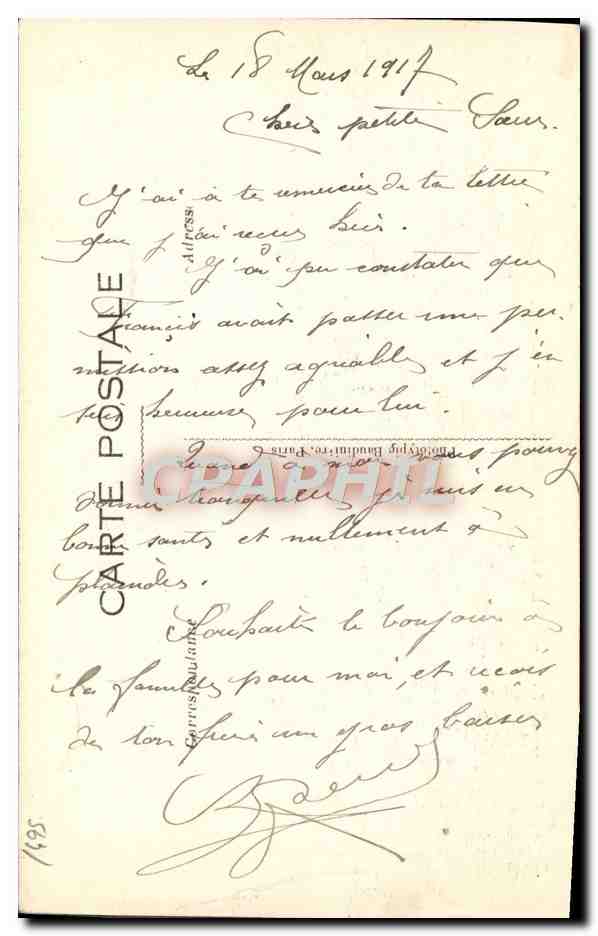 Le 18 Mars 1917
Chère petite Sœur.
J'ai à te remercier de ta lettre
que j'ai reçu hier.
J'ai pu constater que
François avait passer une per-
mission assez agréable et j'en
suis heureuse pour lui.
Quand à moi vous pouvez
dormir tranquilles je suis en
bonne santé et nullement à
plaindre.
Souhaite le bonjour à
la famille pour moi, et reçois
de ton frère un gros baiser
1495
CARTE POSTALE
Adresse
Correspondance
Phototypie Baudinière, Paris
CPAPHIL